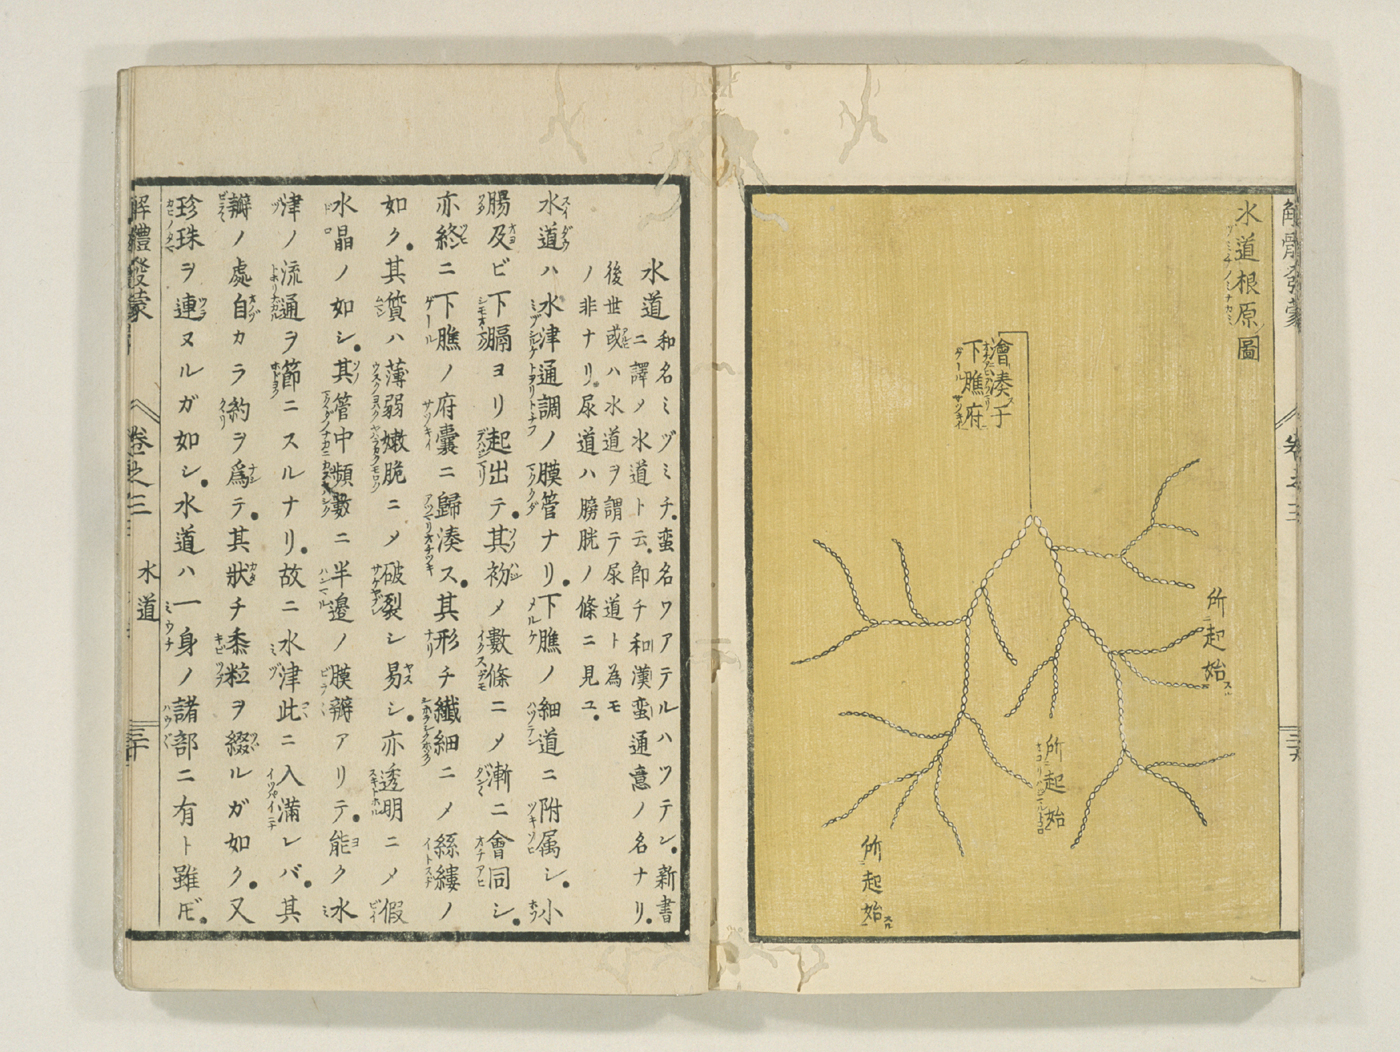 解體發蒙
卷之三
三十九
水道根原圖
ミヅミチノミナカミ
會湊于
下膲府
ゲール
所起始スル
所起始スル
所起始スル
水道
和名ミヅミチ蛮名ワアテルハツテン新書
ニ譯メ水道ト云即チ和漢蛮通意ノ名ナリ
後世或ハ水道ヲ謂テ尿道ト為モ
ノ非ナリ尿道ハ膀胱ノ條ニ見ユ
水道ハ水津通調ノ膜管ナリ下膲ノ細道ニ附属シ小
腸及ビ下膈ヨリ起出テ其初メ數條ニメ漸ニ會同シ
亦終ニ下膲ノ府囊ニ歸湊ス其形チ纖細ニメ絲縷ノ
如ク其質ハ薄弱嫩脆ニメ破裂シ易シ亦透明ニメ假
水晶ノ如シ其管中頻數ニ半邊ノ膜瓣アリテ能ク水
津ノ流通ヲ節ニスルナリ故ニ水津此ニ入満レバ其
瓣ノ處自カラ約ヲ爲テ其狀チ黍粒ヲ綴ルガ如ク又
珍珠ヲ連ヌルガ如シ水道ハ一身ノ諸部ニ有ト雖ドモ
解體發蒙
卷之三
水道
三十